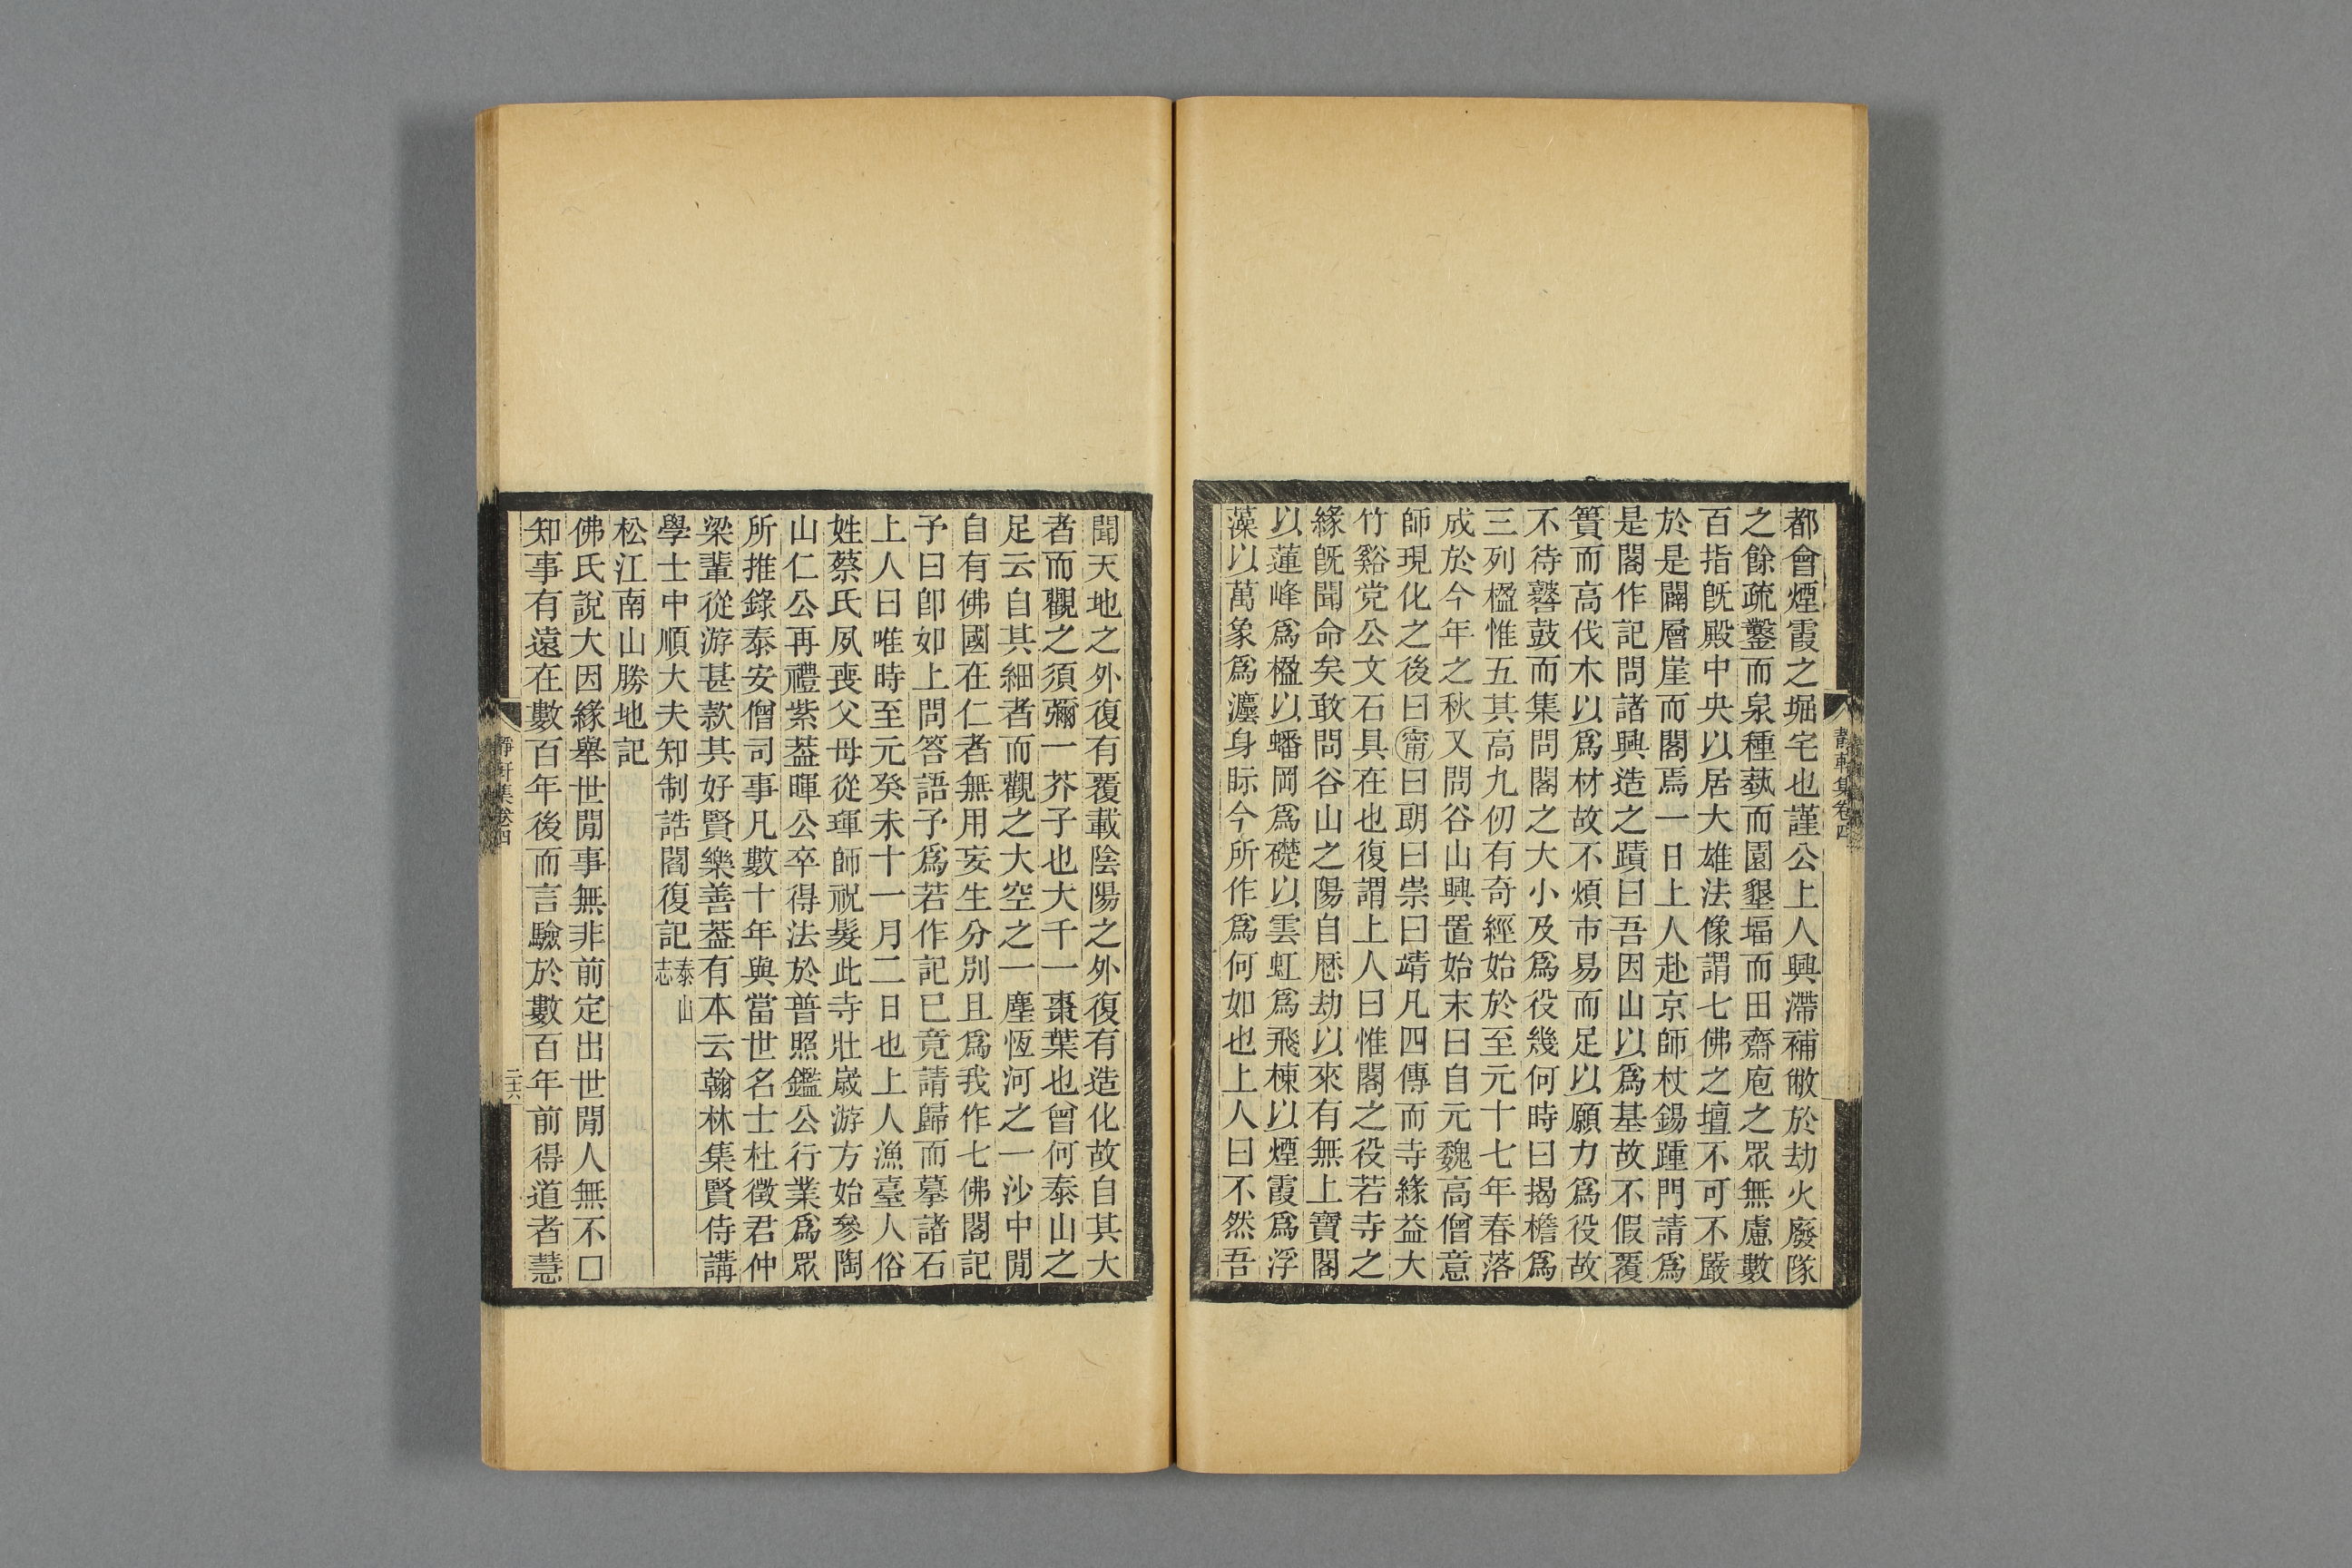 都會煙霞之堀宅也謹公上人興滯補敝於劫火廢隊
之餘疏鑿而泉種蓺而園墾堛而田齋庖之眾無慮數
百指旣殿中央以居大雄法像謂七佛之壇不可不嚴
於是闢層崖而閣焉一日上人赴京師杖錫踵門請爲
是閣作記問諸興造之蹟曰吾因山以爲基故不假覆
簣而高伐木以爲材故不煩市易而足以願力爲役故
不待鼛鼓而集問閣之大小及爲役幾何時曰揭檐爲
三列楹惟五其高九仞有奇經始於至元十七年春落
成於今年之秋又問谷山興置始末曰自元魏高僧意
師現化之後曰甯曰朗曰崇曰靖凡四傳而寺緣益大
竹谿党公文石具在也復謂上人曰惟閣之役若寺之
緣旣聞命矣敢問谷山之陽自厯劫以來有無上寶閣
以蓮峰爲楹以蟠岡爲礎以雲虹爲飛棟以煙霞爲浮
藻以萬象爲灋身眎今所作爲何如也上人曰不然吾
靜軒集卷四
聞天地之外復有覆載陰陽之外復有造化故自其大
者而觀之須彌一芥子也大千一棗葉也曾何泰山之
足云自其細者而觀之大空之一塵恆河之一沙中閒
自有佛國在仁者無用妄生分別且爲我作七佛閣記
予曰卽如上問答語予爲若作記已竟請歸而摹諸石
上人曰唯時至元癸未十一月二日也上人漁臺人俗
姓蔡氏夙喪父母從琿師祝髮此寺壯歲游方始參陶
山仁公再禮紫葢暉公卒得法於普照鑑公行業爲眾
所推錄泰安僧司事凡數十年與當世名士杜徵君仲
梁輩從游甚款其好賢樂善葢有本云翰林集賢侍講
學士中順大夫知制誥閻復記泰山志
松江南山勝地記
佛氏說大因緣舉世閒事無非前定出世閒人無不□
知事有遠在數百年後而言驗於數百年前得道者慧
靜軒集卷四
二十六